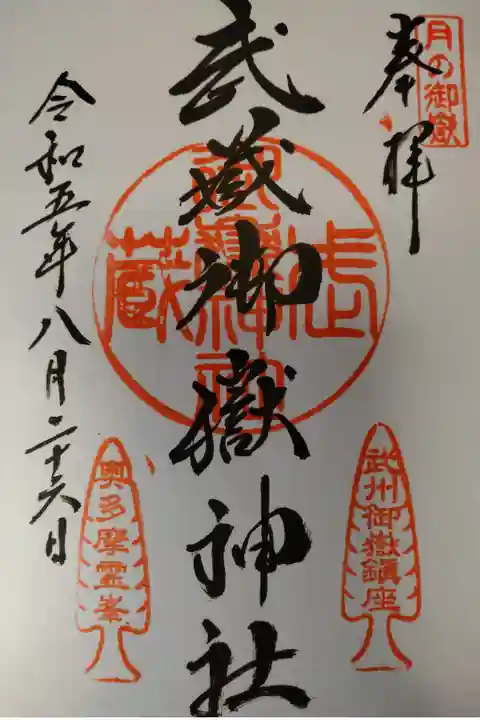 月の御嶽
奉拝
武州御嶽鎮座
武蔵御嶽神社
武蔵
令和五年八月二十六日
奥多摩霊峯